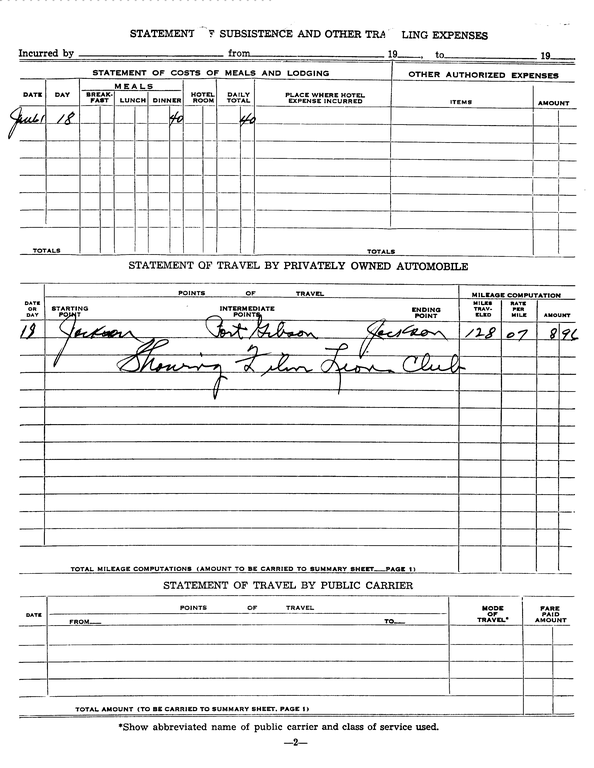 STATEMENT F SUBSISTENCE AND OTHER TRA LING EXPENSES
Incurred by from 19 , to 19
STATEMENT OF COSTS OF MEALS AND LODGING OTHER AUTHORIZED EXPENSES
DATE DAY MEALS BREAK-FAST LUNCH DINNER HOTEL ROOM DAILY TOTAL PLACE WHERE HOTEL EXPENSE INCURRED ITEMS AMOUNT
18 40 40
TOTALS TOTALS
STATEMENT OF TRAVEL BY PRIVATELY OWNED AUTOMOBILE
POINTS OF TRAVEL MILEAGE COMPUTATION
DATE OR DAY STARTING POINT INTERMEDIATE POINTS ENDING POINT MILES TRAV-ELED RATE PER MILE AMOUNT
Jackson Port Gibson Jackson 128 07 8 96
Showing Film Lions Club
TOTAL MILEAGE COMPUTATIONS (AMOUNT TO BE CARRIED TO SUMMARY SHEET PAGE 1)
STATEMENT OF TRAVEL BY PUBLIC CARRIER
DATE POINTS OF TRAVEL MODE OF TRAVEL* FARE PAID AMOUNT
FROM TO
TOTAL AMOUNT (TO BE CARRIED TO SUMMARY SHEET, PAGE 1)
*Show abbreviated name of public carrier and class of service used.
—2—